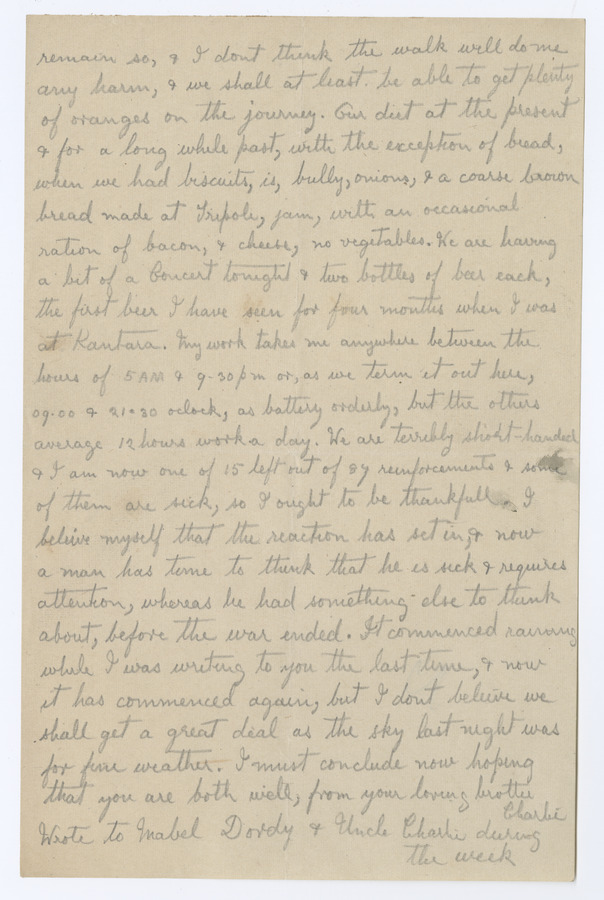 remain so, & I dont think the walk will do me
any harm, & we shall at least. be able to get plenty
of oranges on the journey. Our diet at the present
& for a long while past, with the exception of bread,
when we had biscuits, is, bully, onions, & a coarse brown
bread made at Tripole, jam, with an occasional
ration of bacon, & cheese, no vegetables. We are having
a bit of a Concert tonight & two bottles of beer each,
the first beer I have seen for four months when I was
at Kantara. My work takes me anywhere between the
hours of 5 AM & 9-30 pm or, as we term it out here,
09.00 & 21.30 oclock, as battery orderly, but the others
average 12 hours work a day. We are terribly short-handed
& I am now one of 15 left out of 87 reinforcements & some
of them are sick, so I ought to be thankfull. I
believe myself that the reaction has set in, & now
a man has time to think that he is sick & requires
attention, whereas he had something else to think
about, before the war ended. It commenced raining
while I was writing to you the last time, & now
it has commenced again, but I dont believe we
shall get a great deal as the sky last night was
for fine weather. I must conclude now hoping
that you are both well, from your loving brother
Charlie
Wrote to Mabel Dordy & Uncle Charlie during
the week